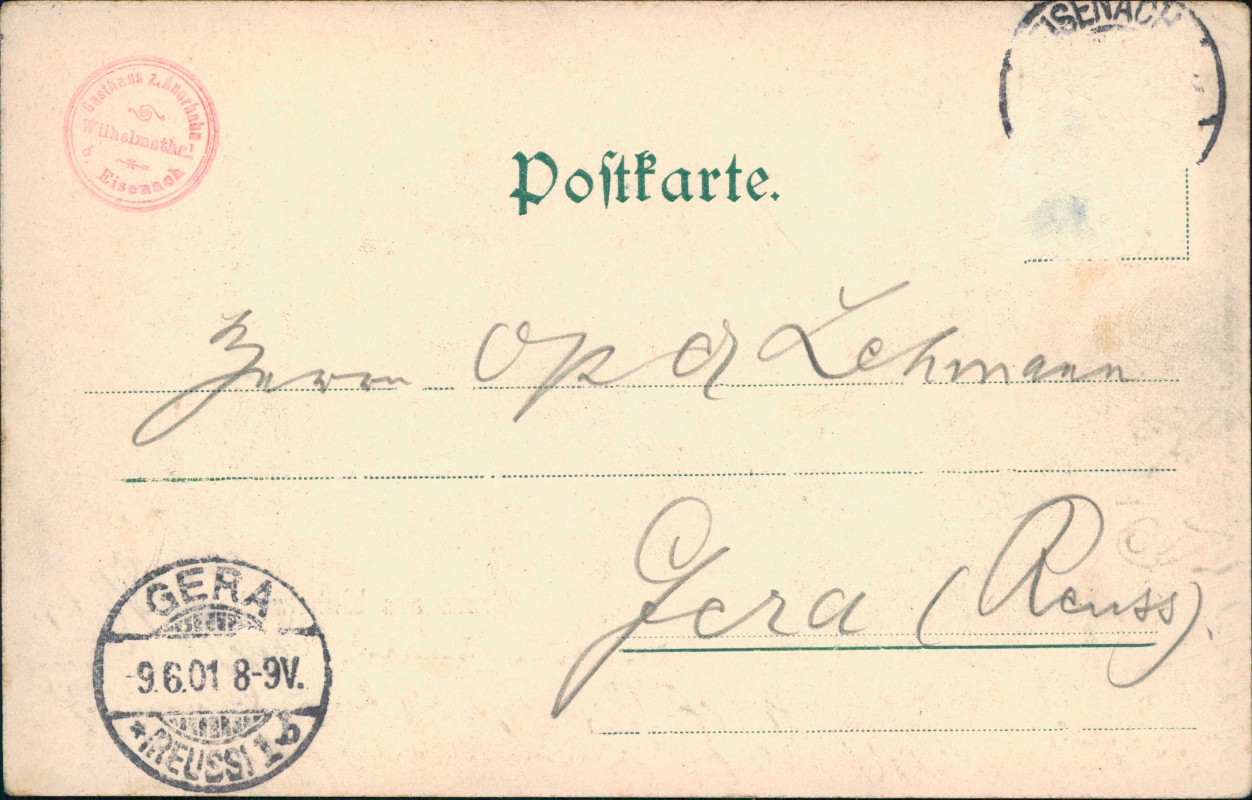 EISENACH
Gasthaus z. Auerhahn-
Wilhelmsthal
b. Eisenach
Postkarte.
Herrn Op a Lehmann
Gera (Reuss).
GERA
-9.6.01 8-9V.
*(REUSS) 1 b